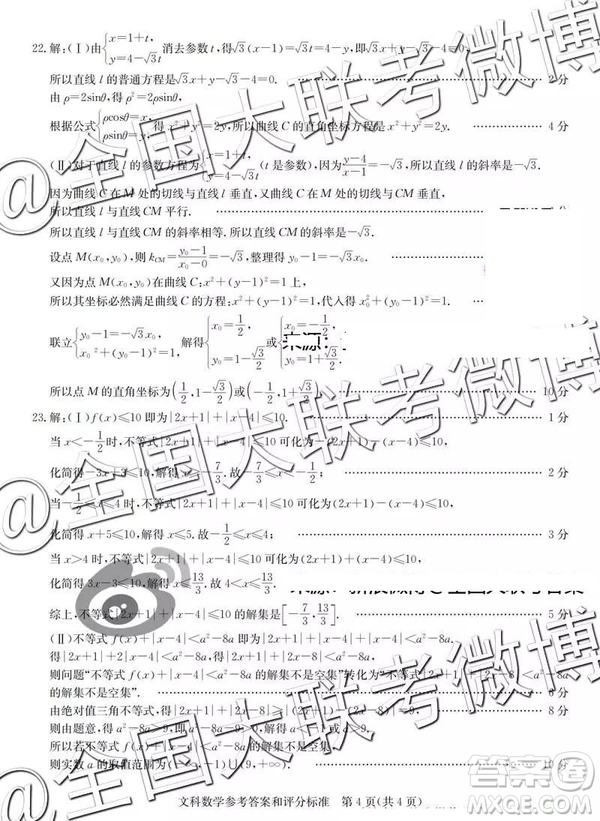 22.解:(Ⅰ)由{x=1+t, y=4-√3t 消去参数t,得√3(x-1)=4-y,即√3x+y-√3-4=0.
所以直线 l 的普通方程是√3x+y-√3-4=0. 2分
由ρ=2sinθ,得ρ²=2ρsinθ,
根据公式{ρcosθ=x, ρsinθ=y, 得 x²+y²=2y,所以曲线 C 的直角坐标方程是x²+y²=2y. 4分
(Ⅱ)对于直线 l 的参数方程为 (t是参数),因为(y-4)/(x-1)=-√3,所以直线 l 的斜率为-√3.
因为曲线 C 在 M 处的切线与直线 l 垂直,又曲线 C 在 M 处的切线与直线 CM 垂直,
所以直线 l 与直线 CM 平行.
所以直线 l 与直线 CM 的斜率相等.所以直线 CM 的斜率为-√3.
设点 M(x₀,y₀),则k_CM=(y₀-1)/(x₀-0)=-√3,整理得y₀-1=-√3x₀.
又因为点 M(x₀,y₀)在曲线 C:x²+(y-1)²=1上,
所以其坐标必然满足曲线 C 的方程:x²+(y-1)²=1,代入得x₀²+(y₀-1)²=1.
联立{y₀-1=-√3x₀, x₀²+(y₀-1)²=1, 解得{x₀=1/2, y₀=1-√3/2 或{x₀=-1/2, y₀=1+√3/2. 来源:
所以点 M 的直角坐标为(1/2,1-√3/2)或(-1/2,1+√3/2). 10分
23.解:(Ⅰ)f(x)≤10即为|2x+1|+|x-4|≤10. 1分
当x<-1/2时,不等式|2x+1|+|x-4|≤10可化为-(2x+1)-(x-4)≤10,
化简得-3x+3≤10,解得x≥-7/3.故-7/3≤x<-1/2; 2分
当-1/2≤x≤4时,不等式|2x+1|+|x-4|≤10可化为(2x+1)-(x-4)≤10,
化简得x+5≤10,解得x≤5.故-1/2≤x≤4; 3分
当x>4时,不等式|2x+1|+|x-4|≤10可化为(2x+1)+(x-4)≤10,
化简得3x-3≤10,解得x≤13/3.故4<x≤13/3.
综上,不等式|2x+1|+|x-4|≤10的解集是[-7/3,13/3]. 5分
(Ⅱ)不等式f(x)+|x-4|<a²-8a即为|2x+1|+|x-4|+|x-4|<a²-8a.
得|2x+1|+2|x-4|<a²-8a,得|2x+1|+|2x-8|<a²-8a. 6分
则问题"不等式f(x)+|x-4|<a²-8a的解集不是空集"转化为"不等式|2x+1|+|2x-8|<a²-8a
的解集不是空集". 8分
由绝对值三角不等式,得|2x+1|+|2x-8|≥|(2x+1)-(2x-8)|=9.
则由题意,得a²-8a>9,即a²-8a-9>0,解得a<-1或a>9.
所以若不等式f(x)+|x-4|<a²-8a的解集不是空集,
则实数a的取值范围为(-∞,-1)∪(9,+∞). 10分
文科数学参考答案和评分标准 第4页(共4页)
@全国大联考微博
@全国大联考微博
@全国大联考微博
答案圈